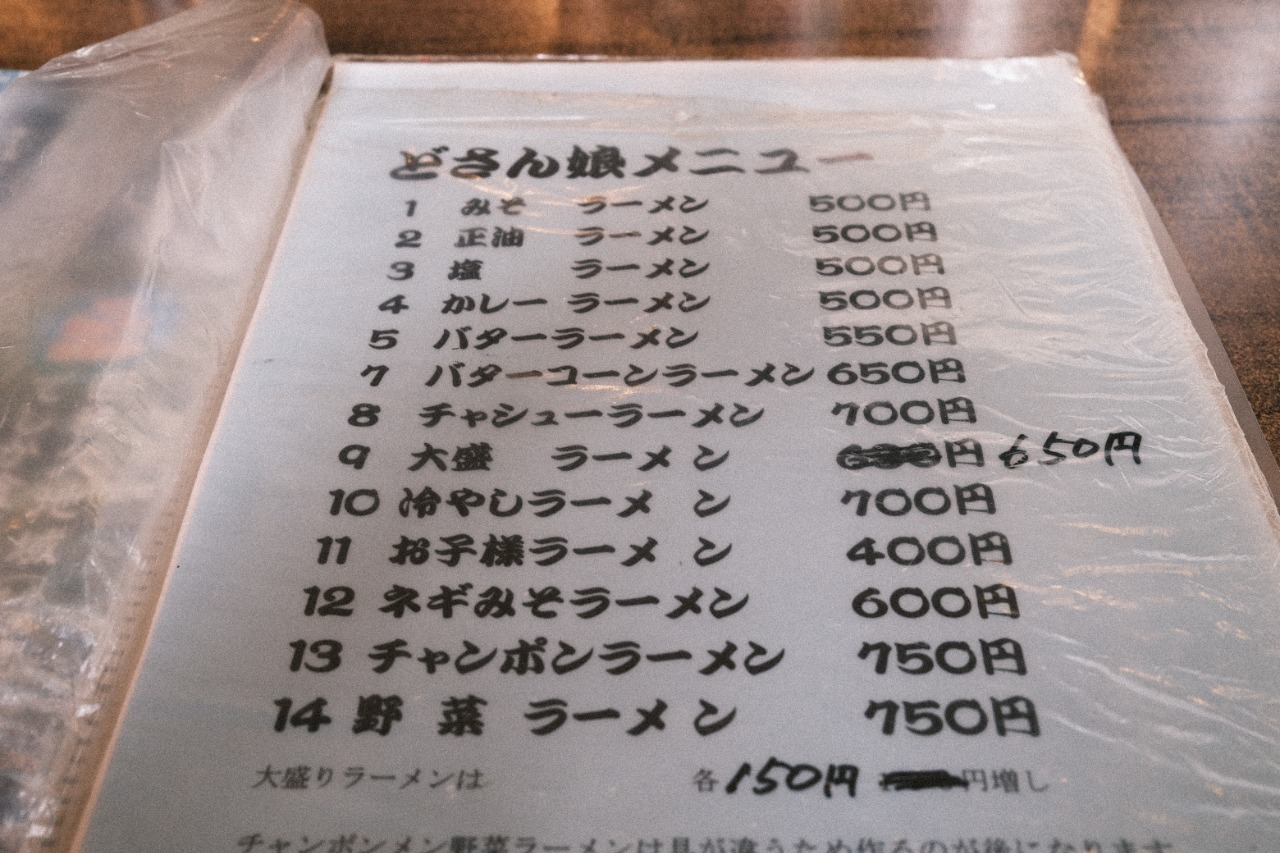 どさん娘メニュー
1 みそ ラーメン 500円
2 正油 ラーメン 500円
3 塩 ラーメン 500円
4 かレー ラーメン 500円
5 バターラーメン 550円
7 バターコーンラーメン 650円
8 チャシューラーメン 700円
9 大盛 ラーメン 円 650円
10 冷やしラーメン 700円
11 お子様ラーメン 400円
12 ネギみそラーメン 600円
13 チャンポンラーメン 750円
14 野菜 ラーメン 750円
大盛りラーメンは 各150円 円増し
チャンポンメン野菜ラーメンは具が違うため作るのが後になります